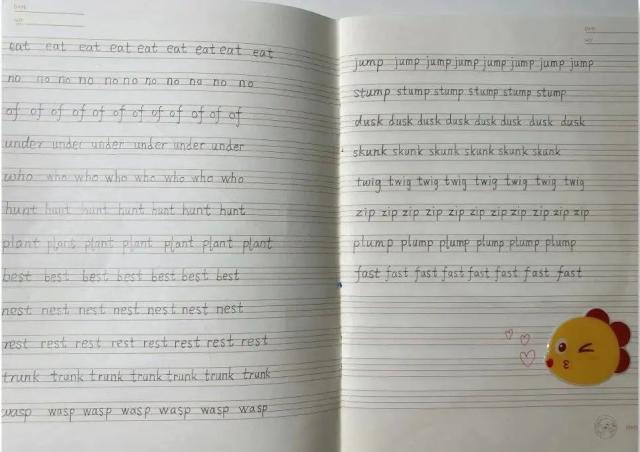 eat eat eat eat eat eat eat eat eat
no no no no no no no no no no no
of of of of of of of of of of of of
under under under under under under
who who who who who who who who
hunt hunt hunt hunt hunt hunt hunt
plant plant plant plant plant plant plant
best best best best best best best
nest nest nest nest nest nest nest
rest rest rest rest rest rest rest rest
trunk trunk trunk trunk trunk trunk trunk
wasp wasp wasp wasp wasp wasp wasp
jump jump jump jump jump jump jump jump
stump stump stump stump stump stump
dusk dusk dusk dusk dusk dusk dusk dusk
skunk skunk skunk skunk skunk skunk
twig twig twig twig twig twig twig twig
zip zip zip zip zip zip zip zip zip zip
plump plump plump plump plump plump
fast fast fast fast fast fast fast fast